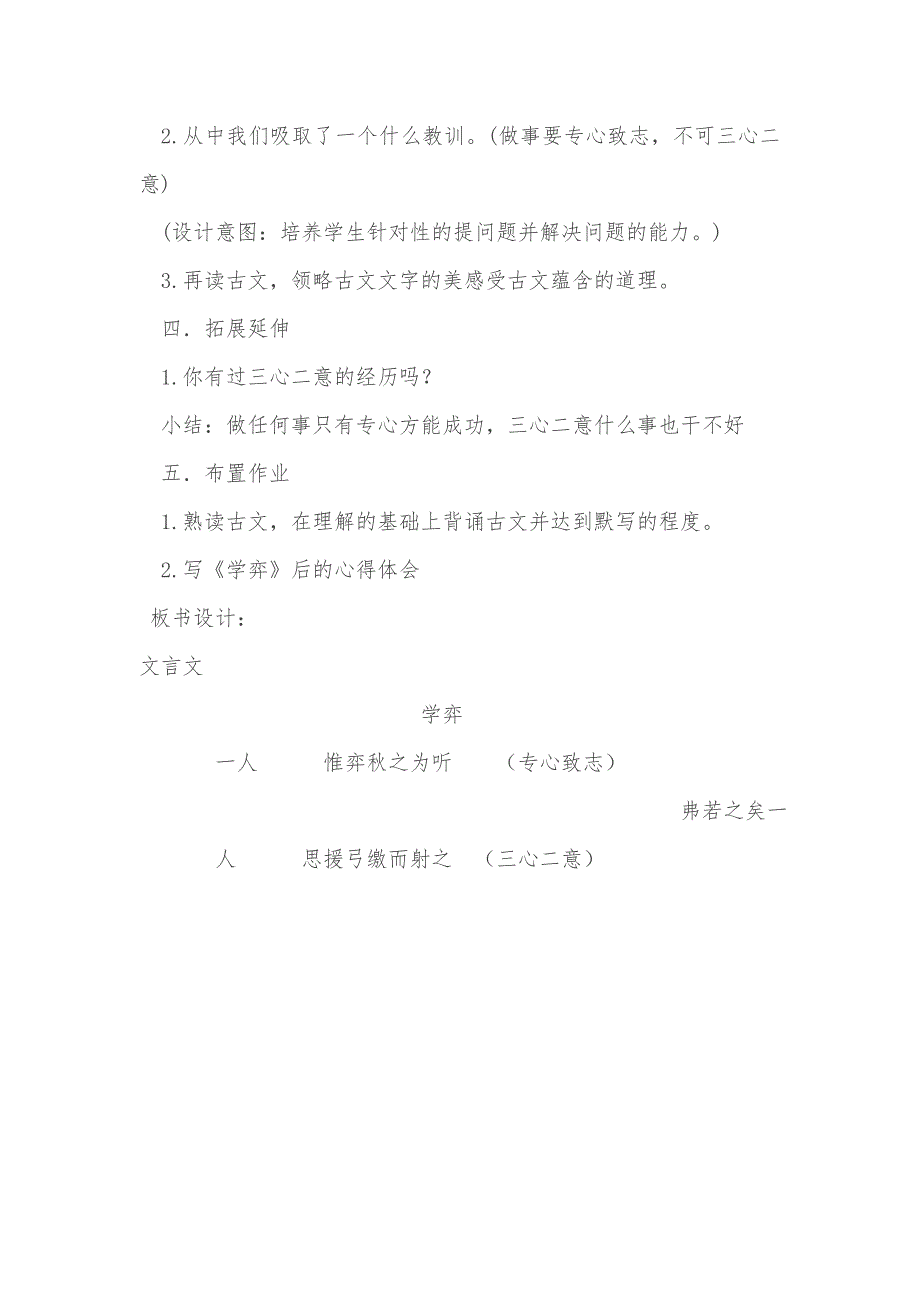 2.从中我们吸取了一个什么教训。(做事要专心致志，不可三心二
意)
(设计意图：培养学生针对性的提问题并解决问题的能力。)
3.再读古文，领略古文文字的美感受古文蕴含的道理。
四．拓展延伸
1.你有过三心二意的经历吗？
小结：做任何事只有专心方能成功，三心二意什么事也干不好
五．布置作业
1.熟读古文，在理解的基础上背诵古文并达到默写的程度。
2.写《学弈》后的心得体会
板书设计：
文言文
学弈
一人 惟弈秋之为听 （专心致志）
弗若之矣一
人 思援弓缴而射之 （三心二意）